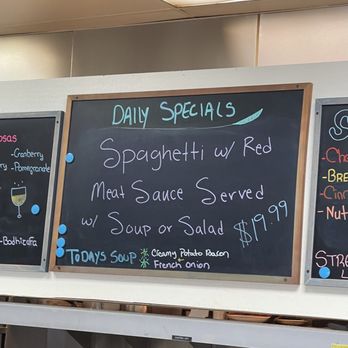 osas
- Cranberry
- Pomegranate
DAILY SPECIALS
Spaghetti w/ Red
Meat Sauce Served
w/ Soup or Salad $19.99
TODAYS SOUP * Creamy Potato Bacon
* French onion
S
Ch
BRE
Cin
Nut
STRE